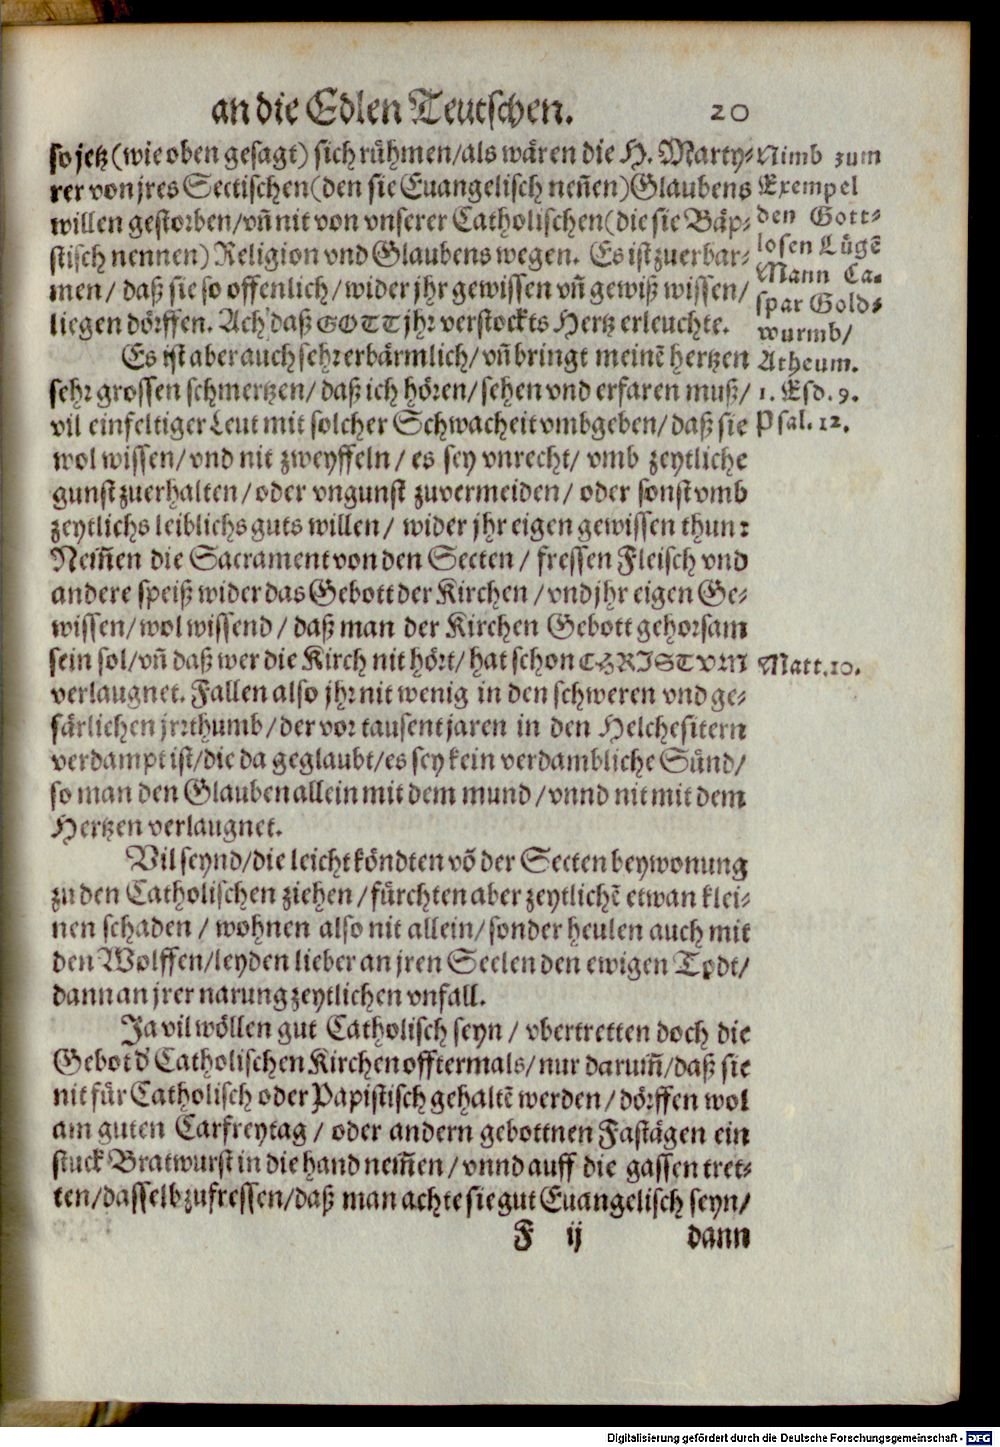 an die Edlen Teutschen. 20
so jetz (wie oben gesagt) sich rühmen / als wären die H. Marty-
rer von jres Sectischen (den sie Euangelisch neñen) Glaubens
willen gestorben / vñ nit von vnserer Catholischen (die sie Bäp-
stisch nennen) Religion vnd Glaubens wegen. Es ist zuerbar-
men / daß sie so offenlich / wider jhr gewissen vñ gewiß wissen /
liegen dörffen. Ach daß GOTT jhr verstockts Hertz erleuchte.
Es ist aber auch sehr erbärmlich / vñ bringt meinẽ hertzen
sehr grossen schmertzen / daß ich hören / sehen vnd erfaren muß /
vil einfeltiger Leut mit solcher Schwacheit vmbgeben / daß sie
wol wissen / vnd nit zweyffeln / es sey vnrecht / vmb zeytliche
gunst zuerhalten / oder vngunst zuvermeiden / oder sonst vmb
zeytlichs leiblichs guts willen / wider jhr eigen gewissen thun:
Nem̃en die Sacrament von den Secten / fressen Fleisch vnd
andere speiß wider das Gebott der Kirchen / vnd jhr eigen Ge-
wissen / wol wissend / daß man der Kirchen Gebott gehorsam
sein sol / vñ daß wer die Kirch nit hört / hat schon CHRISTVM
verlaugnet. Fallen also jhr nit wenig in den schweren vnd ge-
färlichen jrrthumb / der vor tausent jaren in den Helchesitern
verdampt ist / die da geglaubt / es sey kein verdambliche Sünd /
so man den Glauben allein mit dem mund / vnnd nit mit dem
Hertzen verlaugnet.
Vil seynd / die leicht köndten võ der Secten beywonung
zu den Catholischen ziehen / fürchten aber zeytlichẽ etwan klei-
nen schaden / wohnen also nit allein / sonder heulen auch mit
den Wolffen / leyden lieber an jren Seelen den ewigen Todt /
dann an jrer narung zeytlichen vnfall.
Ja vil wöllen gut Catholisch seyn / vbertretten doch die
Gebot d' Catholischen Kirchen offtermals / nur darum̃ / daß sie
nit für Catholisch oder Papistisch gehaltẽ werden / dörffen wol
am guten Carfreytag / oder andern gebottnen Fastägen ein
stuck Bratwurst in die hand nem̃en / vnnd auff die gassen tret-
ten / dasselb zufressen / daß man achte sie gut Euangelisch seyn /
F ij dann
Nimb zum
Exempel
den Gott-
losen Lügẽ
Mann Ca-
spar Gold-
wurmb /
Atheum.
1. Esd. 9.
Psal. 12.
Matt. 10.
Digitalisierung gefördert durch die Deutsche Forschungsgemeinschaft - DFG